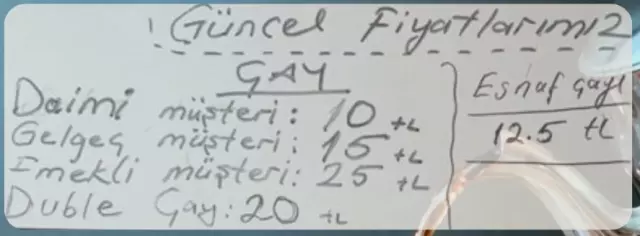 ! Güncel Fiyatlarımız
ÇAY
Daimi müşteri: 10 tL
Gelgeç müşteri: 15 tL
Emekli müşteri: 25 tL
Duble Çay: 20 tL
Esnaf çayı
12.5 tL